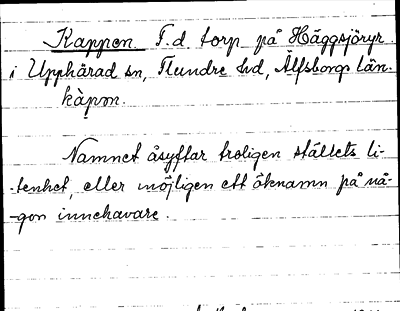 Kappen. F.d. torp på Häggsjöryr
i Upphärad sn, Flundre hd, Älfsborgs län.
kàpən.
Namnet åsyftar troligen ställets li-
tenhet, eller möjligen ett öknamn på nå-
gon innehavare.